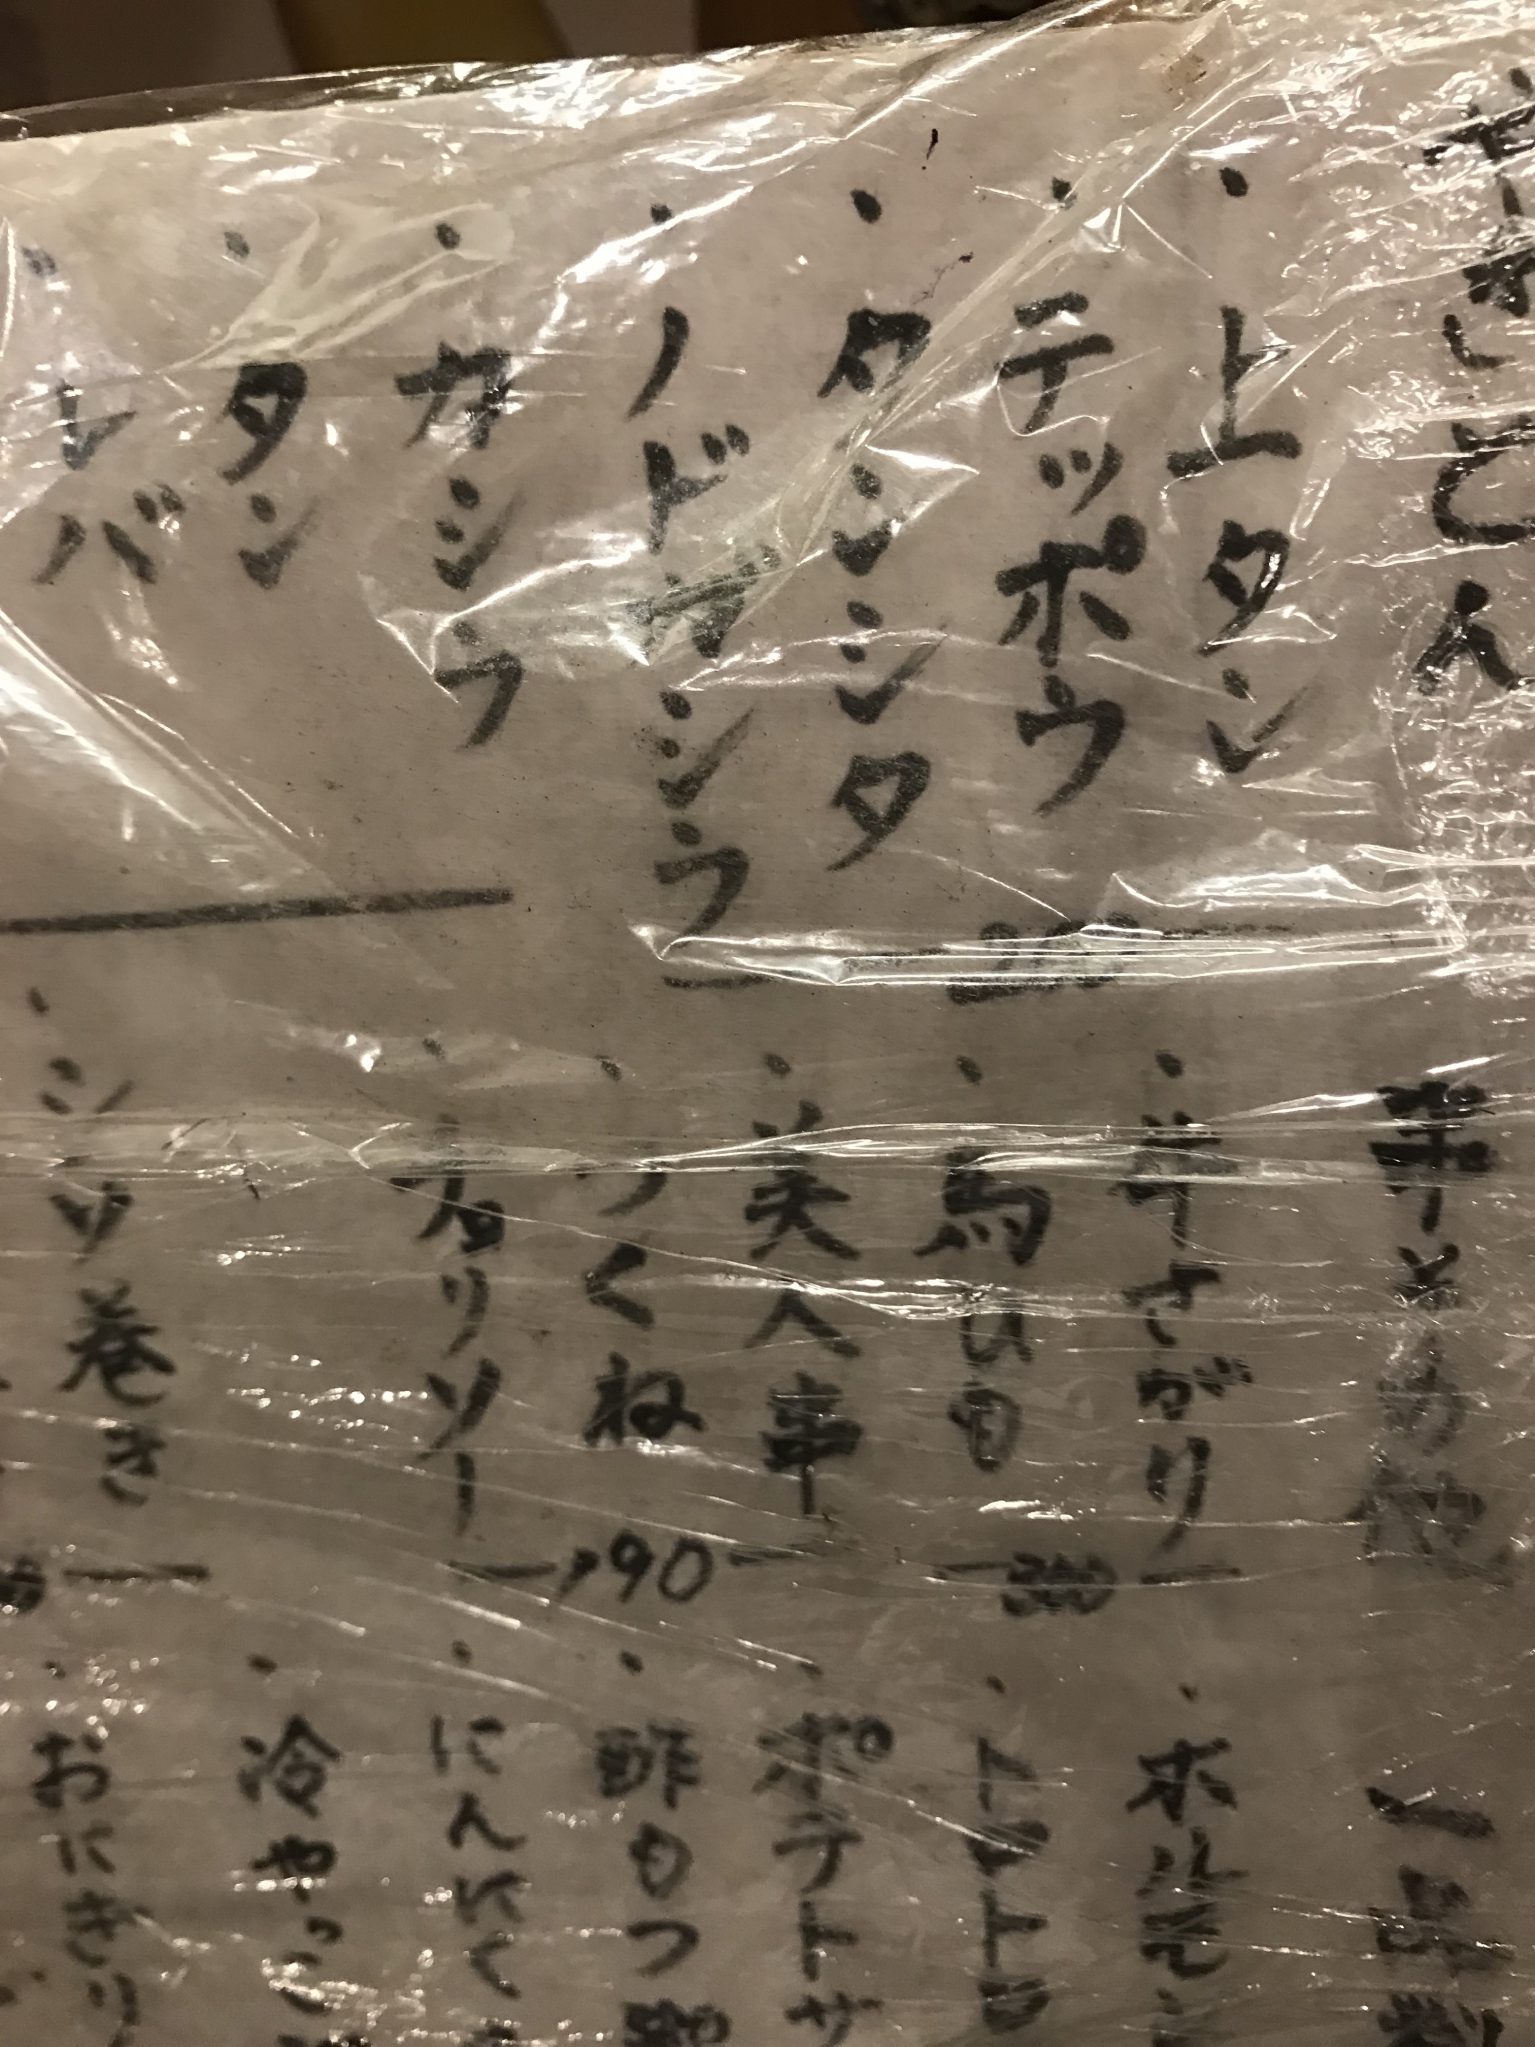 やきとん
・上タン
・テッポウ
・タンシタ
・ノドガシラ
200
・カシラ
・タン
・レバ
串その他
・牛さがり
・馬ひも
300
・美人串
・つくね
・カリソー
190
・シソ巻き
一品料
・トマト
・ポテトサ
・酢もつ
・にんにく
・冷やっこ
・おにぎり